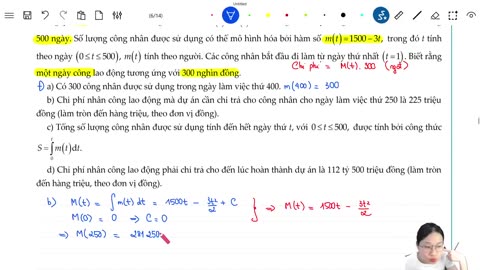 Untitled
(6/14)
500 ngày. Số lượng công nhân được sử dụng có thể mô hình hóa bởi hàm số m(t)=1500−3t, trong đó t tính
theo ngày (0≤t≤500), m(t) tính theo người. Các công nhân bắt đầu đi làm từ ngày thứ nhất (t=1). Biết rằng
một ngày công lao động tương ứng với 300 nghìn đồng.
Chi phí = M(t).300 (ngđ)
a) Có 300 công nhân được sử dụng trong ngày làm việc thứ 400. m(400) = 300
b) Chi phí nhân công lao động mà dự án cần chi trả cho công nhân cho ngày làm việc thứ 250 là 225 triệu
đồng (làm tròn đến hàng triệu, theo đơn vị đồng).
c) Tổng số lượng công nhân được sử dụng tính đến hết ngày thứ t, với 0≤t≤500, được tính bởi công thức
S=∫₀ᵗ m(t)dt.
d) Chi phí nhân công lao động phải chi trả cho đến lúc hoàn thành dự án là 112 tỷ 500 triệu đồng (làm tròn
đến hàng triệu, theo đơn vị đồng).
b) M(t) = ∫ m(t) dt = 1500t − 3t²/2 + C
M(0) = 0 ⇒ C = 0
⇒ M(t) = 1500t − 3t²/2
⇒ M(250) = 281250